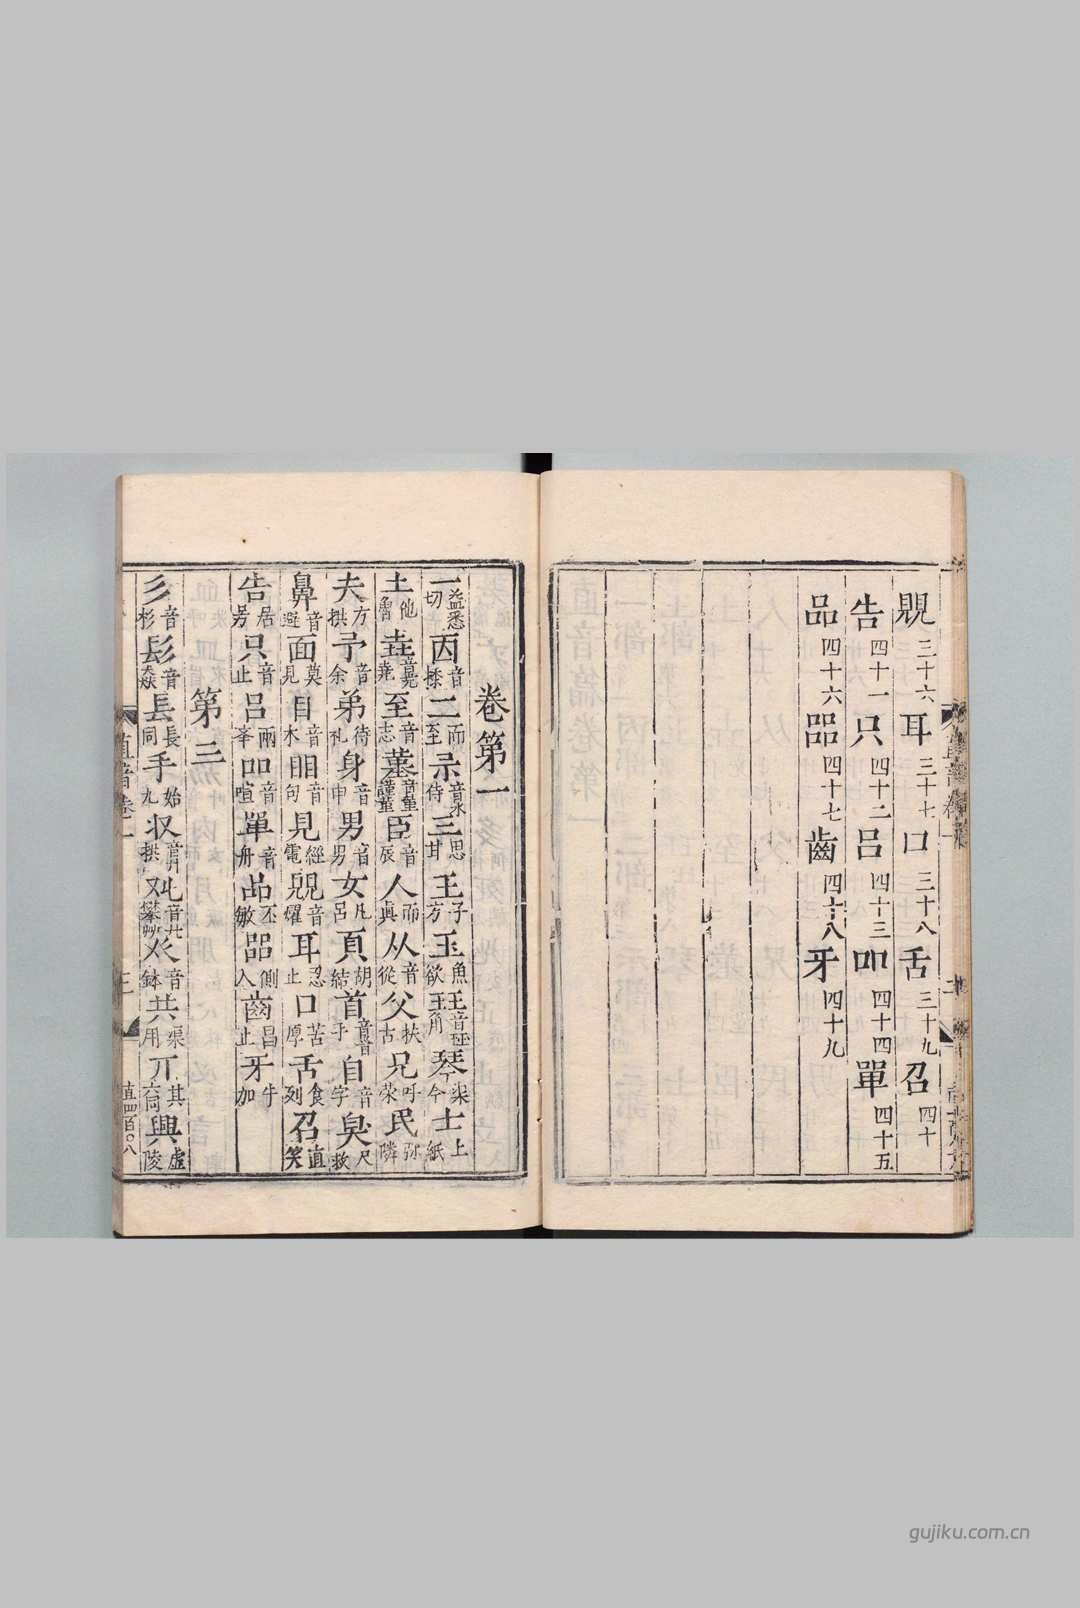 覞三十六 耳三十七 口三十八 舌三十九 召四十
告四十一 只四十二 呂四十三 吅四十四 單四十五
品四十六 㗊四十七 齒四十八 牙四十九
卷第一
一益悉切 㐁音㮇 二而至 示音 三思甘 王子方 玉魚欲 玨音角 琴渠今 士上紙
土他魯 垚音堯 至音志 堇音 臣音辰 人而真 从音從 父扶古 兄呼榮 民弥隣
夫方拱 予音余 弟待礼 身音申 男音男 女尼呂 頁胡結 首音手 自音字 臭尺救
鼻音避 面莫見 目音木 䀠音句 見經電 覞音耀 耳忍止 口苦厚 舌食列 召直笑
告居号 只音止 呂兩峯 吅音喧 單音舟 㗊 品 齒昌止 牙牛加
第三
彡音杉 髟音猋 長同 手始九 収音拱 𠬜音攀 癶音鉢 共渠用 丌其 興虛陵
直音卷一
三
直四百〇八
gujiku.com.cn